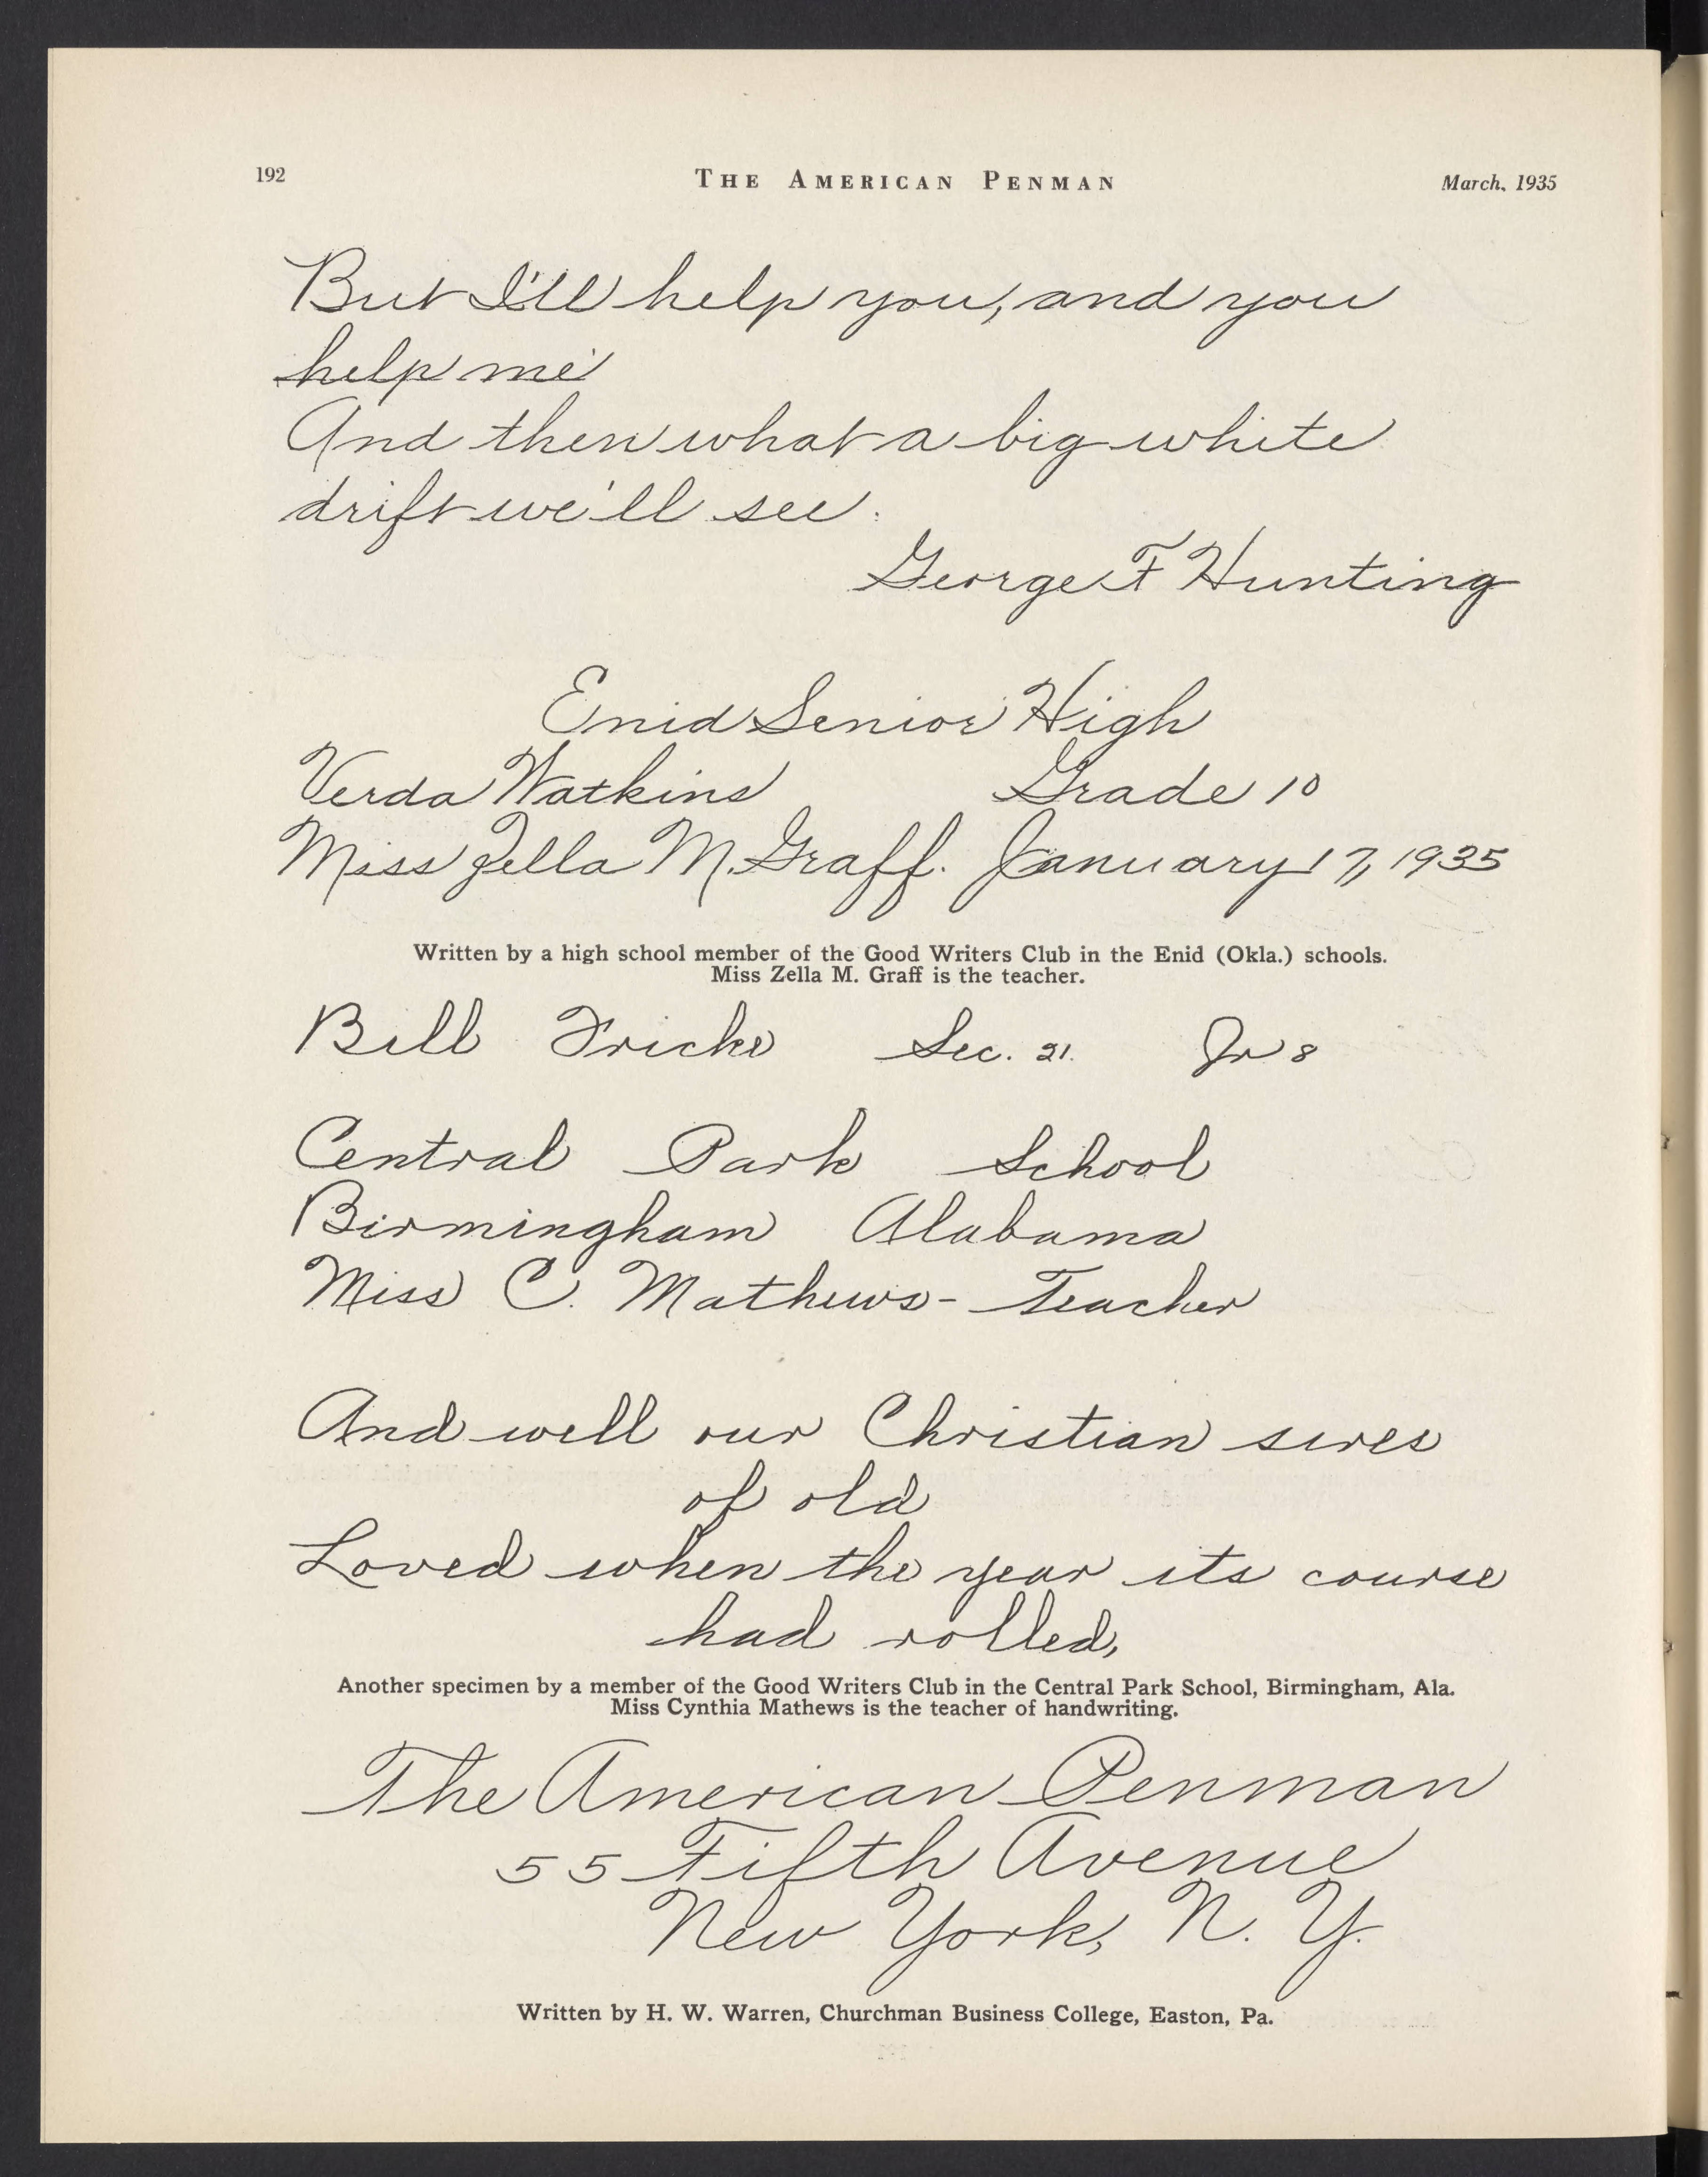 192 THE AMERICAN PENMAN March, 1935
But I'll help you, and you
help me
And then what a big white
drift we'll see.
George F Hunting
Enid Senior High
Verda Watkins Grade 10
Miss Zella M. Graff. January 17, 1935
Written by a high school member of the Good Writers Club in the Enid (Okla.) schools.
Miss Zella M. Graff is the teacher.
Bill Fricke Sec. 21. Jr 8
Central Park School
Birmingham Alabama
Miss C. Mathews - Teacher
And well our Christian sires
of old
Loved when the year its course
had rolled,
Another specimen by a member of the Good Writers Club in the Central Park School, Birmingham, Ala.
Miss Cynthia Mathews is the teacher of handwriting.
The American Penman
55 Fifth Avenue
New York, N. Y.
Written by H. W. Warren, Churchman Business College, Easton, Pa.